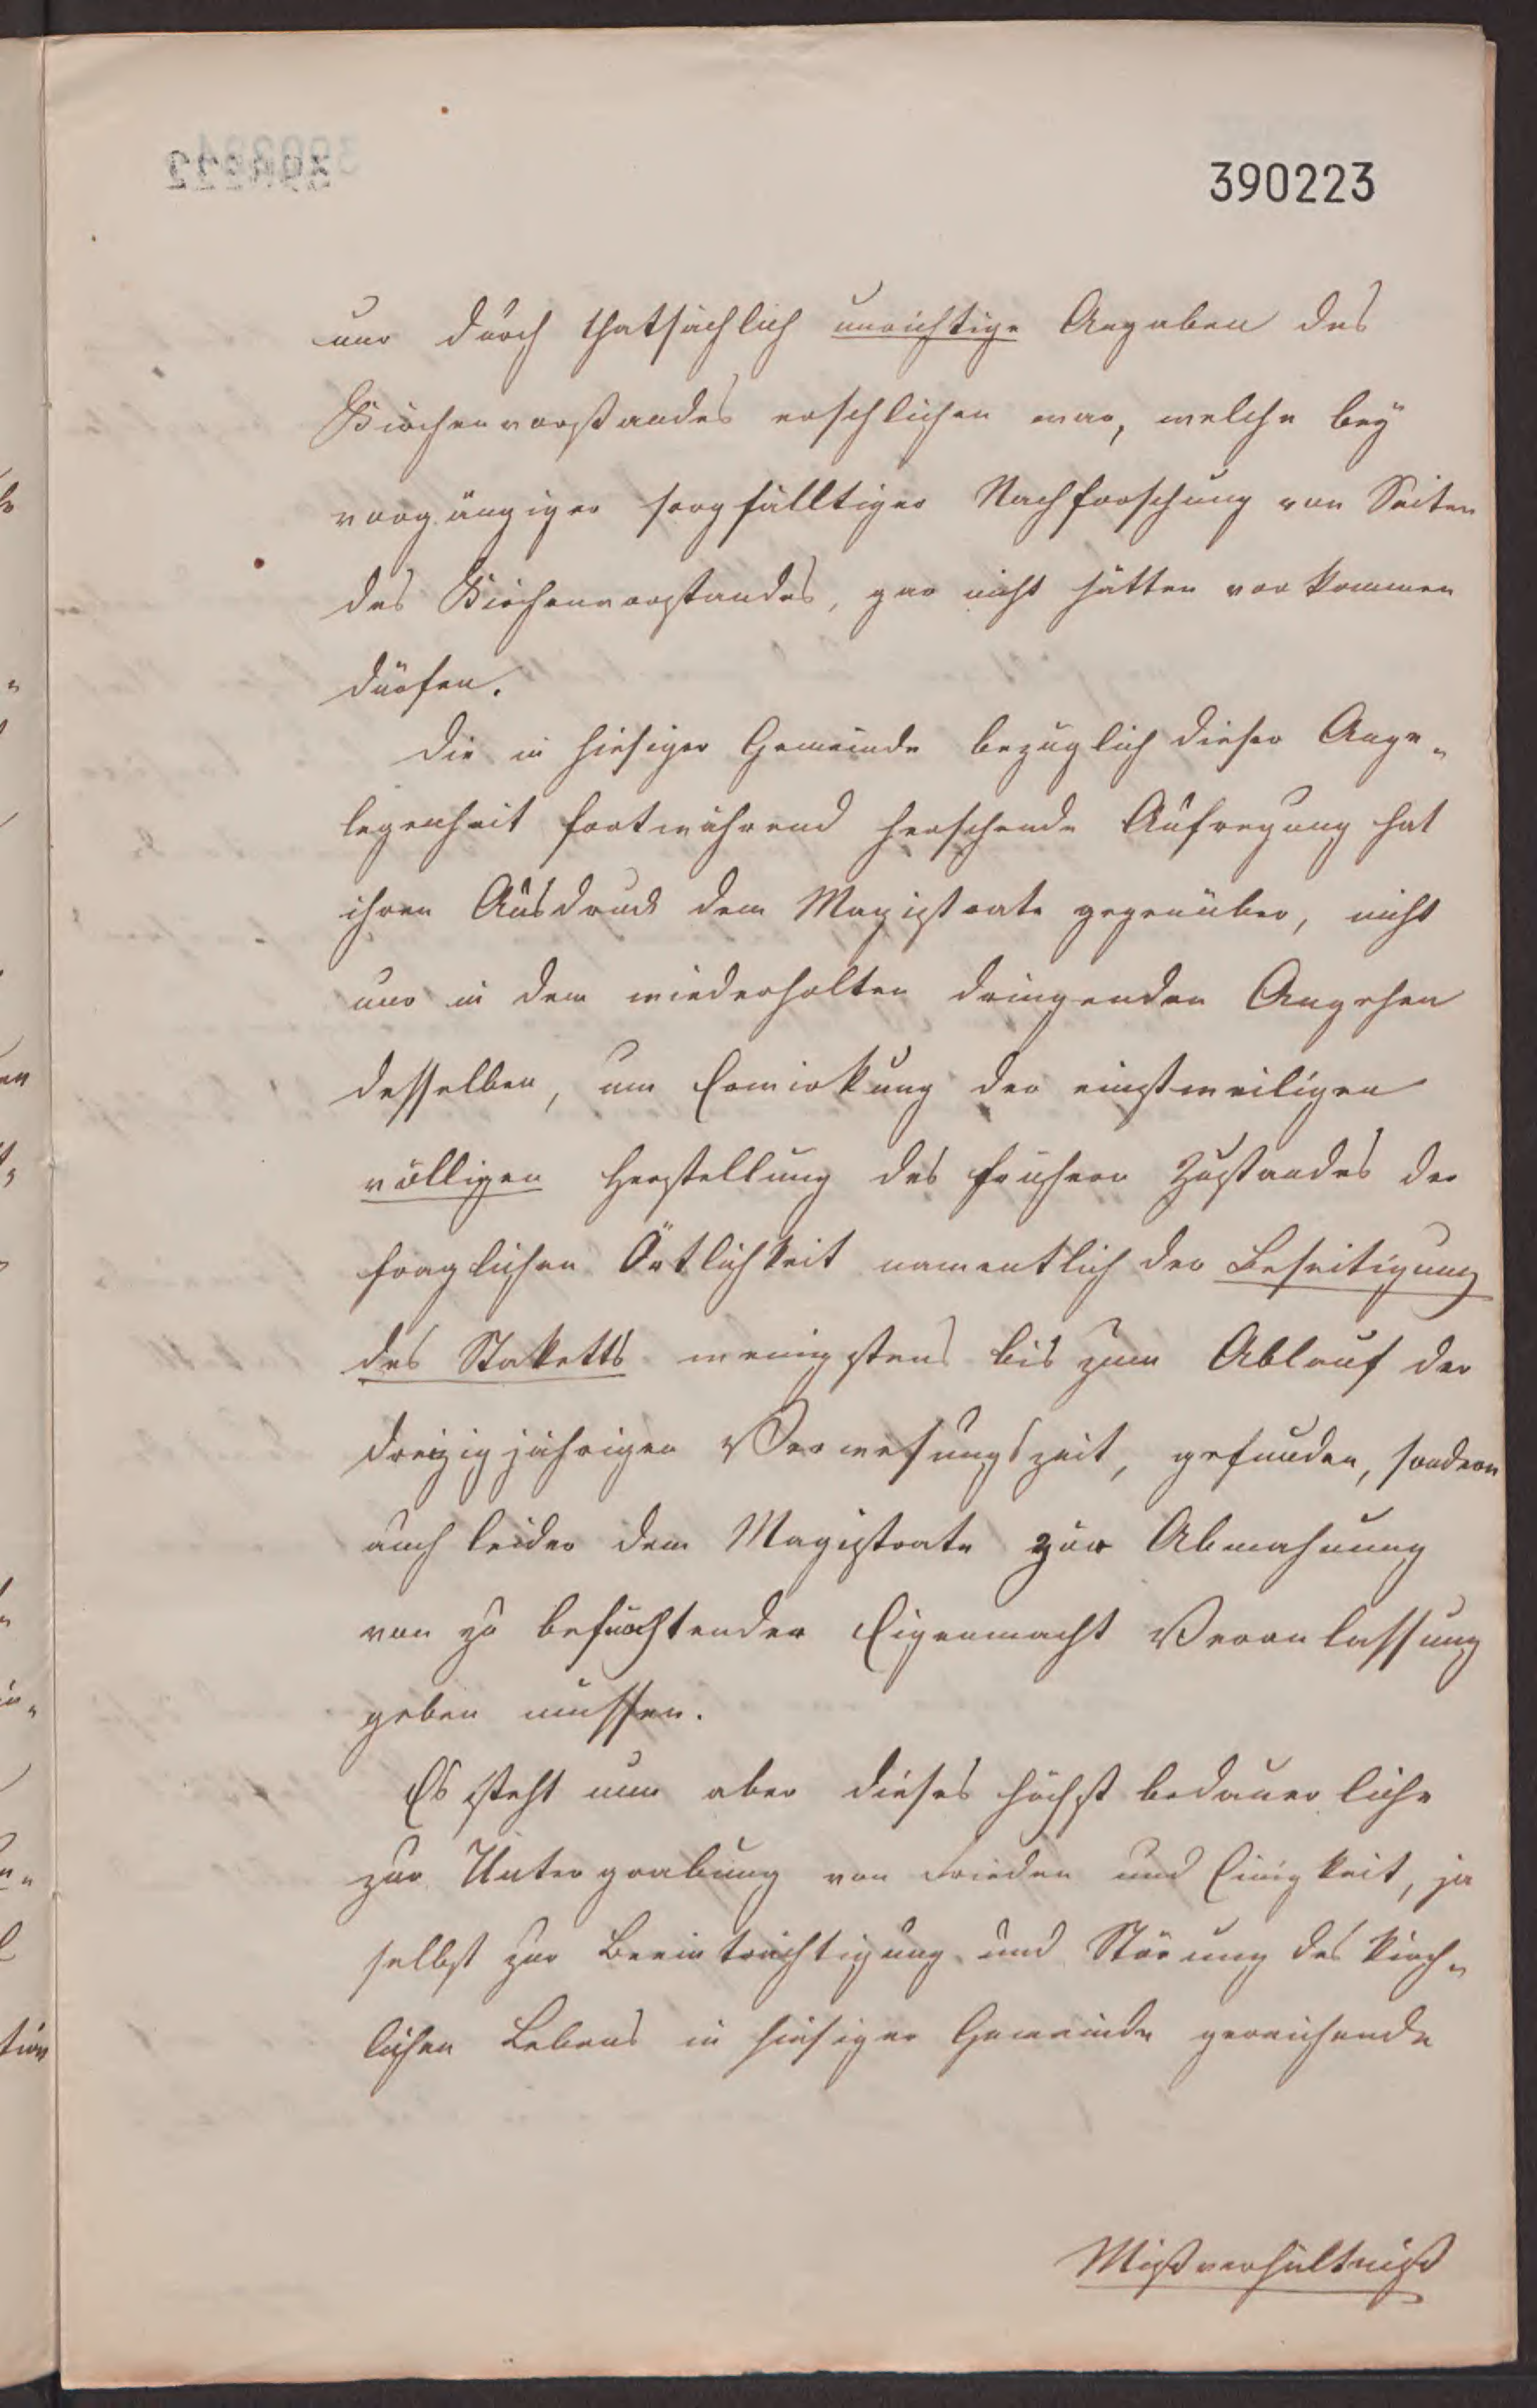 390223
nur durch thatsächlich unrichtige Angaben des
Kirchenvorstandes erschlichen war, welche bey
vorgängiger sorgfälltiger Nachforschung von Seiten
des Kirchenvorstandes, gar nicht hätten vorkommen
dürfen.
Die in hiesiger Gemeinde bezüglich dieser Ange-
legenheit fortwährend herschende Aufregung hat
ihren Ausdruck dem Magistrate gegenüber, nicht
nur in dem wiederholten dringenden Angehen
desselben, um Erwirkung der einstweiligen
völligen Herstellung des frühern Zustandes der
fraglichen Örtlichkeit namentlich der Beseitigung
des Staketts wenigstens bis zum Ablauf der
dreizigjährigen Verwesungszeit, gefunden, sondern
auch leider dem Magistrate zur Abmahnung
von zu befürchtender Eigenmacht Veranlassung
geben müssen.
Es steht nun aber dieses höchst bedauerliche
zur Untergrabung von Frieden und Einigkeit, ja
selbst zur Beeinträchtigung und Störung des kirch-
lichen Lebens in hiesiger Gemeinde gereichende
Mißverhältniß